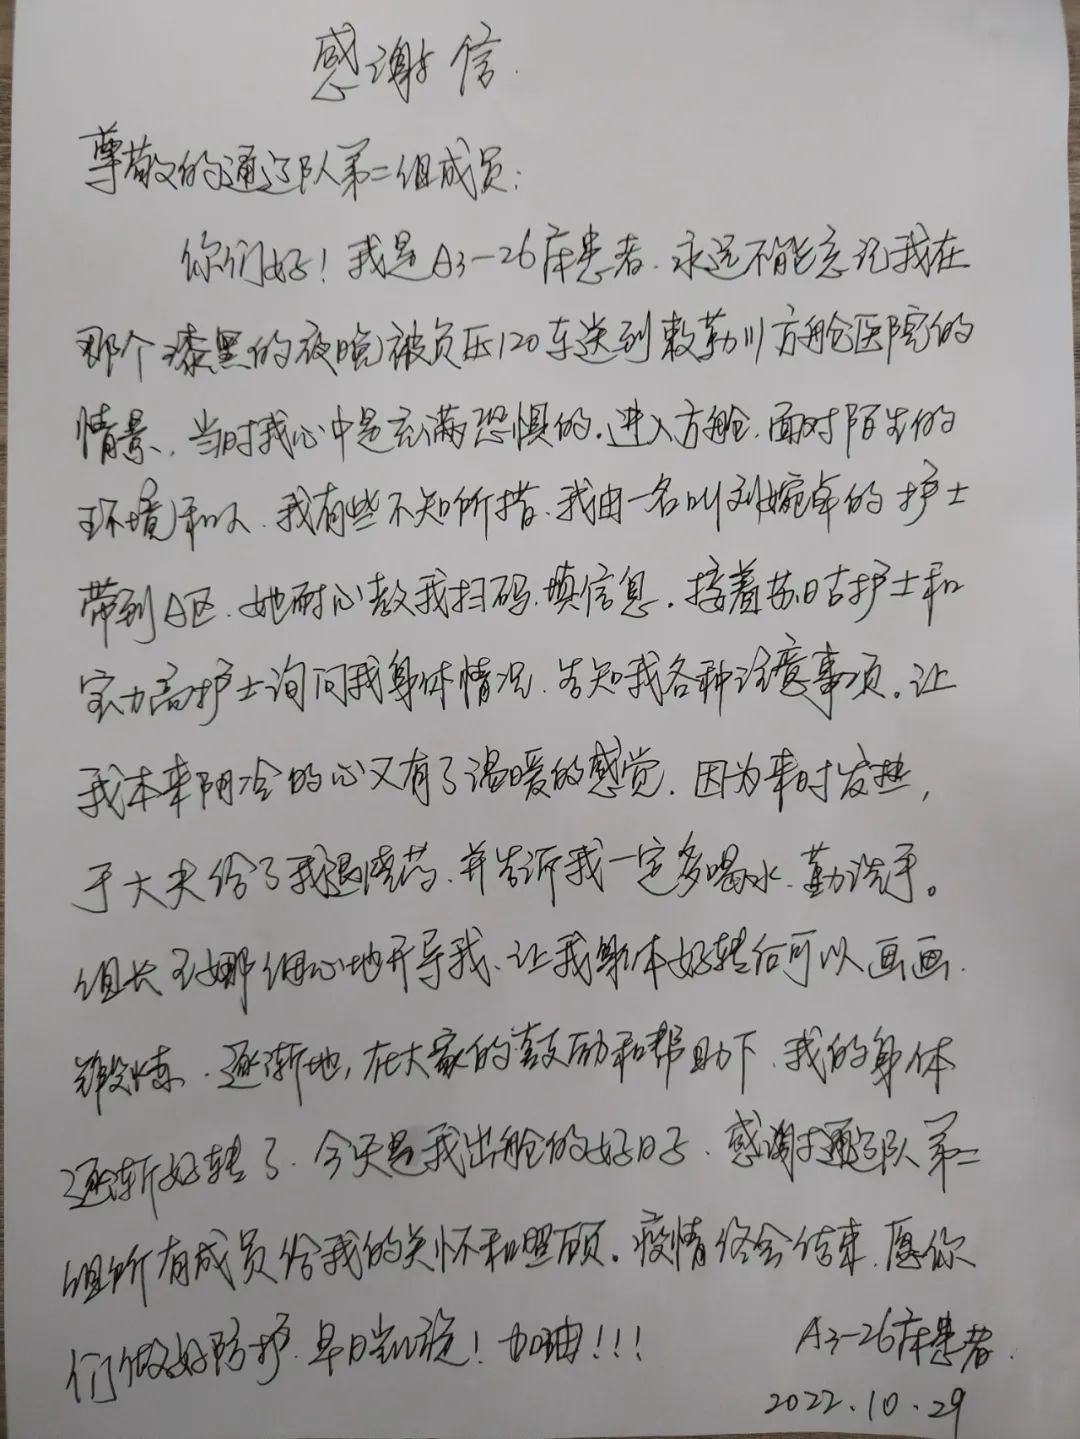 感谢信
尊敬的通辽队第二组成员：
你们好！我是A3-26床患者.永远不能忘记我在
那个漆黑的夜晚被负压120车送到敕勒川方舱医院的
情景.当时我心中是充满恐惧的.进入方舱.面对陌生的
环境和人.我有些不知所措.我由一名叫刘婉卓的护士
带到A区.她耐心教我扫码.填信息.接着苏日古护士和
宝力高护士询问我身体情况.告知我各种注意事项.让
我本来阴冷的心又有了温暖的感觉.因为来时发热，
于大夫给了我退烧药.并告诉我一定多喝水.勤洗手。
组长王娜细心地开导我.让我身体好转后可以画画.
锻炼.逐渐地，在大家的鼓励和帮助下.我的身体
逐渐好转了.今天是我出舱的好日子.感谢通辽队第二
组所有成员给我的关怀和照顾.疫情终会结束.愿你
们做好防护.早日凯旋！加油！！！
A3-26床患者.
2022.10.29